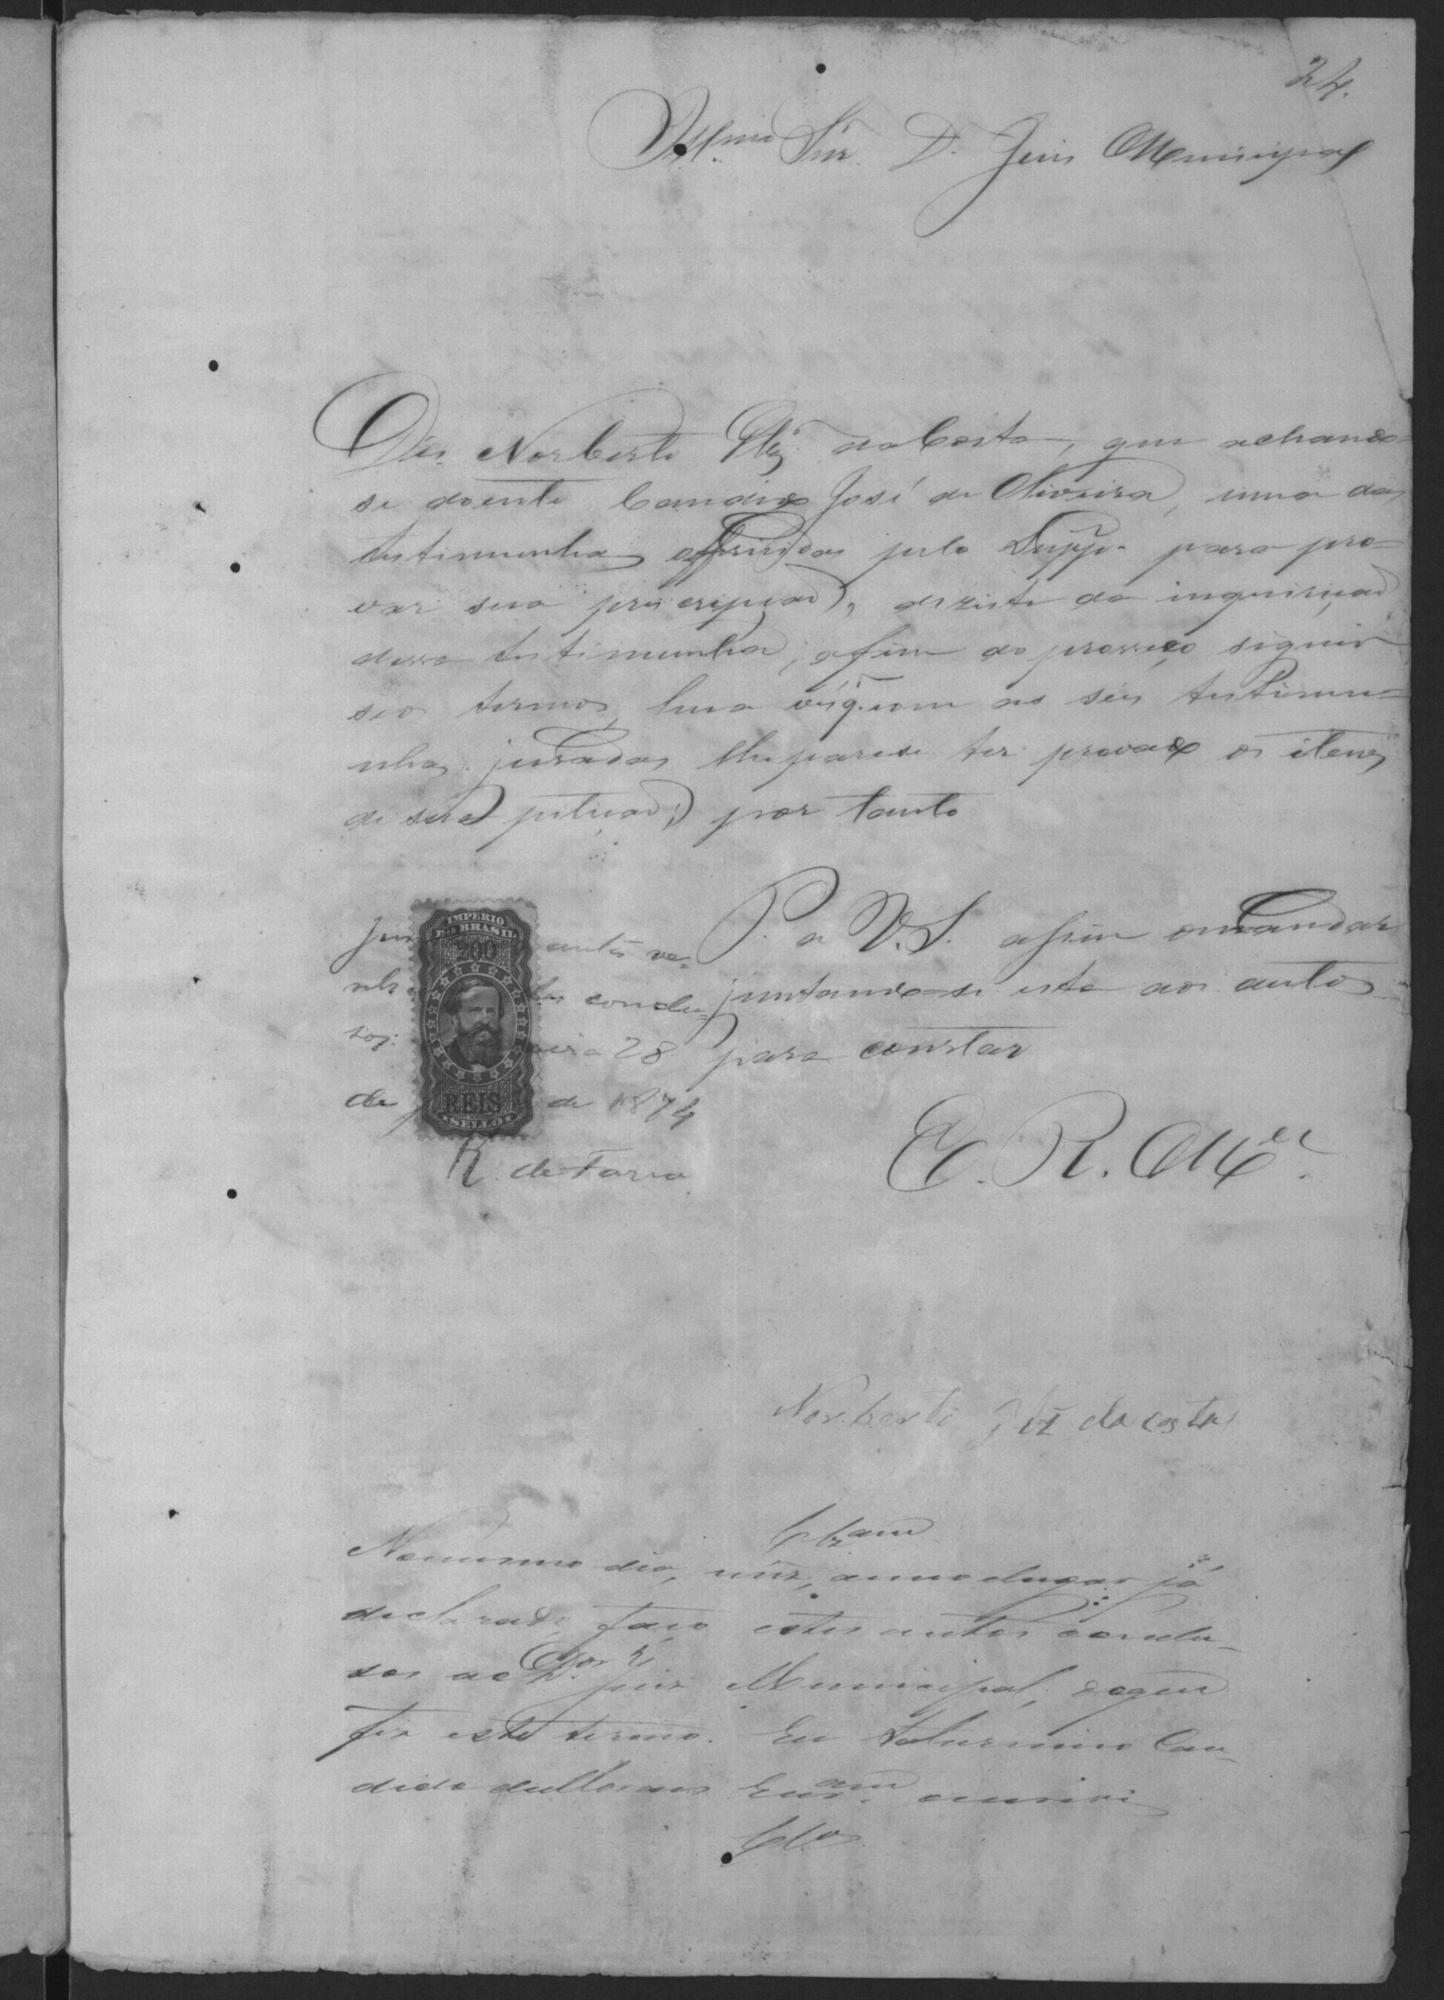 24.
Illmo Snr. Dr. Juis Municipal
Diz Norberto da Costa, que achando
se doente Candido José de Oliveira, uma das
testimunhas offericidas pelo Suppe. para pro-
var sua prescripção, deziste da inquirição
dessa testimunha, afim do processo siguir
seos termos, huma vez q. com as seis testimu-
nhas juradas lhe parese ter provado os itens
de sua petição; por tanto
P. a V. S. afim mandar
juntando-se esta aos autos
para constar
E. R. Mce.
autos ve-
nh conclu-
sos. 28
de de 1874
R. de Faria
IMPERIO
DO BRASIL
200
REIS
SELLO
Norberto da Costa
Clzam
No mesmo dia, mez, anno e lugar já
declarado, faço estes autos conclu-
sos ao Dor. Juiz Municipal, do que
fiz este termo. Eu Saturnino Can-
dido de Moraes Escram. escrivi
Clos